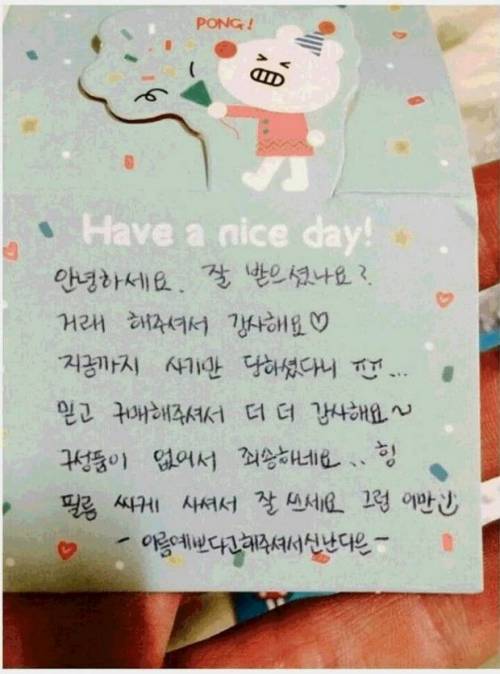 PONG!
Have a nice day!
안녕하세요. 잘 받으셨나요?
거래 해주셔서 감사해요♡
지금까지 사기만 당하셨다니 ㅠㅠ...
믿고 구매해주셔서 더 더 감사해요~
구성품이 없어서 죄송하네요... 힝
필름 싸게 사셔서 잘 쓰세요 그럼 이만
- 이름예쁘다고해주셔서신난다은 -